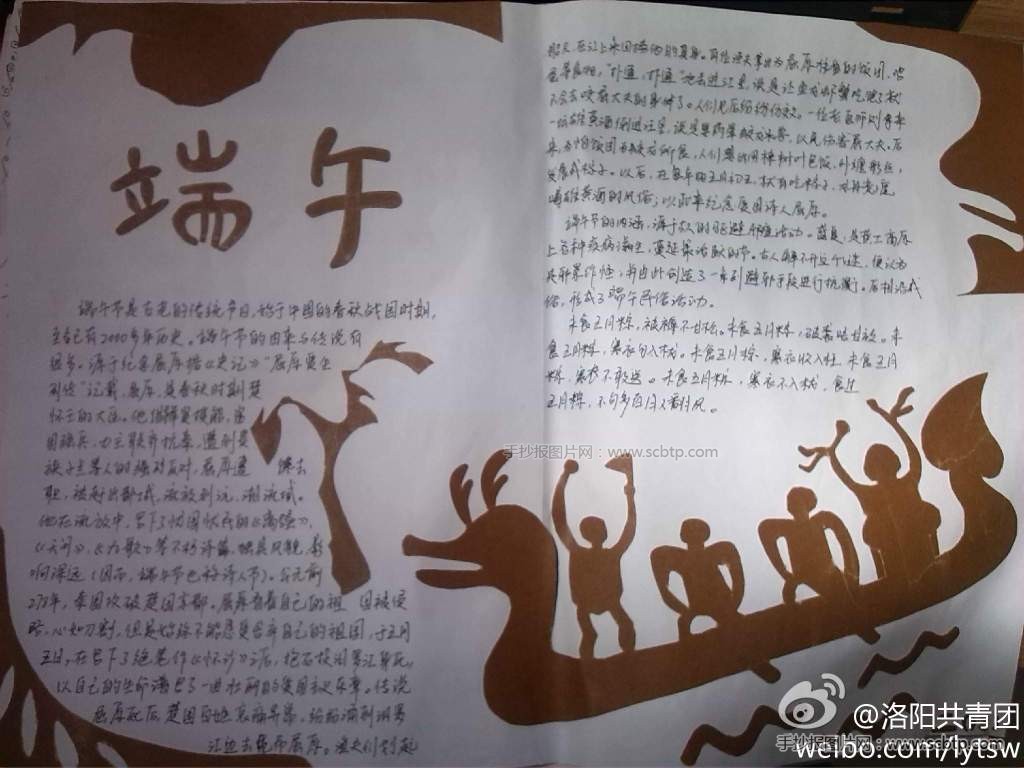 端午
端午节是古老的传统节日,始于中国的春秋战国时期,
至今已有2000多年历史。端午节的由来与传说有
很多。源于纪念屈原据《史记》"屈原贾生
列传"记载,屈原,是春秋时期楚
怀王的大臣。他倡举贤授能,富
国强兵,力主联齐抗秦,遭到贵
族子兰等人的强烈反对,屈原遭 去
职,被赶出都城,流放到沅、湘流域。
他在流放中,写下了忧国忧民的《离骚》、
《天问》、《九歌》等不朽诗篇,独具风貌,影
响深远(因而,端午节也称诗人节)。公元前
278年,秦国攻破楚国京都。屈原看着自己的祖 国被侵
略,心如刀割,但是始终不能忍舍弃自己的祖国,于五月
五日,在写下了绝笔作《怀沙》之后,抱石投汨罗江身死,
以自己的生命谱写了一曲壮丽的爱国主义乐章。传说
屈原死后,楚国百姓哀痛异常,纷纷涌到汨罗
江边去凭吊屈原。渔夫们划起
船只,在江上来回打捞他的真身。有位渔夫拿出为屈原准备的饭团、
鸡蛋等食物,"扑通、扑通"地丢进江里,说是让鱼龙虾蟹吃饱了,就
不会去咬屈大夫的身体了。人们见后纷纷仿效。一位老医师则拿来
一坛雄黄酒倒进江里,说是要药晕蛟龙水兽,以免伤害屈大夫。后
来,为怕饭团为蛟龙所食,人们想出用楝树叶包饭,外缠彩丝,
发展成粽子。以后,在每年的五月初五,就有吃粽子、
喝雄黄酒的风俗;以此来纪念爱国诗人屈原。
上百种疾病
俗,形成了端午民俗活动。
未食五月粽,被褥不甘松。未食五月粽,
食五月粽,寒衣勿入栊。未食五月粽,寒衣收入杜,未食五月
粽,寒衣不敢送。未食五月粽,寒衣不入栊,食过
五月粽,不够百日又番风。
手抄报图片网:www.scbtp.com
@洛阳共青团
手抄报图片网:www.scbtp.com
weibo.com/lytsw